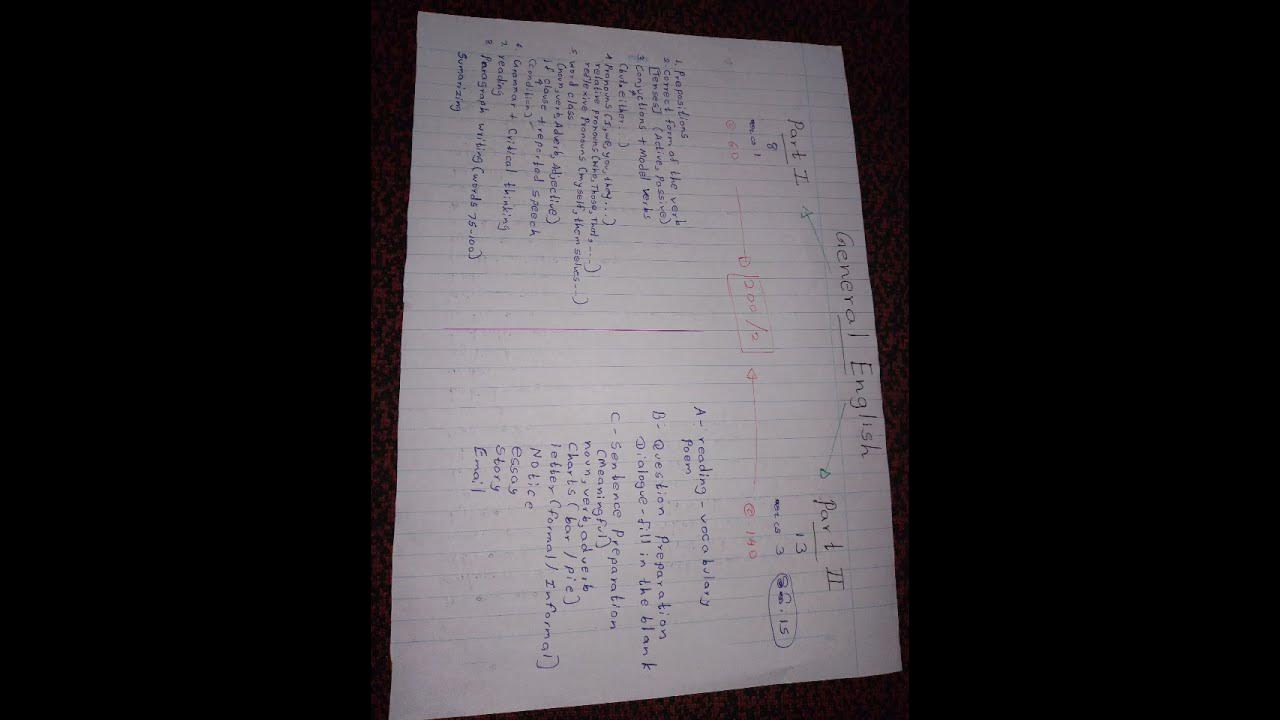 General English
Part I
8
පැය 1
@ 60
200/2
Part II
13
පැය 3
15
@ 140
1. Prepositions
2. Correct form of the verb
[Tenses] (Active, Passive)
3. Conjuctions + Model verbs
(but, either...)
4. Pronouns (I, we, you, they...)
relative pronouns (who, Those, That, ...)
reflexive Pronouns (myself, themselves...)
5. word class
(noun, verb, Adverb, Adjective)
if clause + reported speech
(condition)
6. Grammar + Critical thinking
7. reading
8. Paragraph writing (words 75-100)
Sumarizing
A - reading - vocabulary
Poem
B - Question preparation
Dialogue - fill in the blank
C - Sentence Preparation
(meaningful)
noun, verb, adverb
Charts (bar / pie)
letter (formal / Informal)
Notice
essay
Story
Email